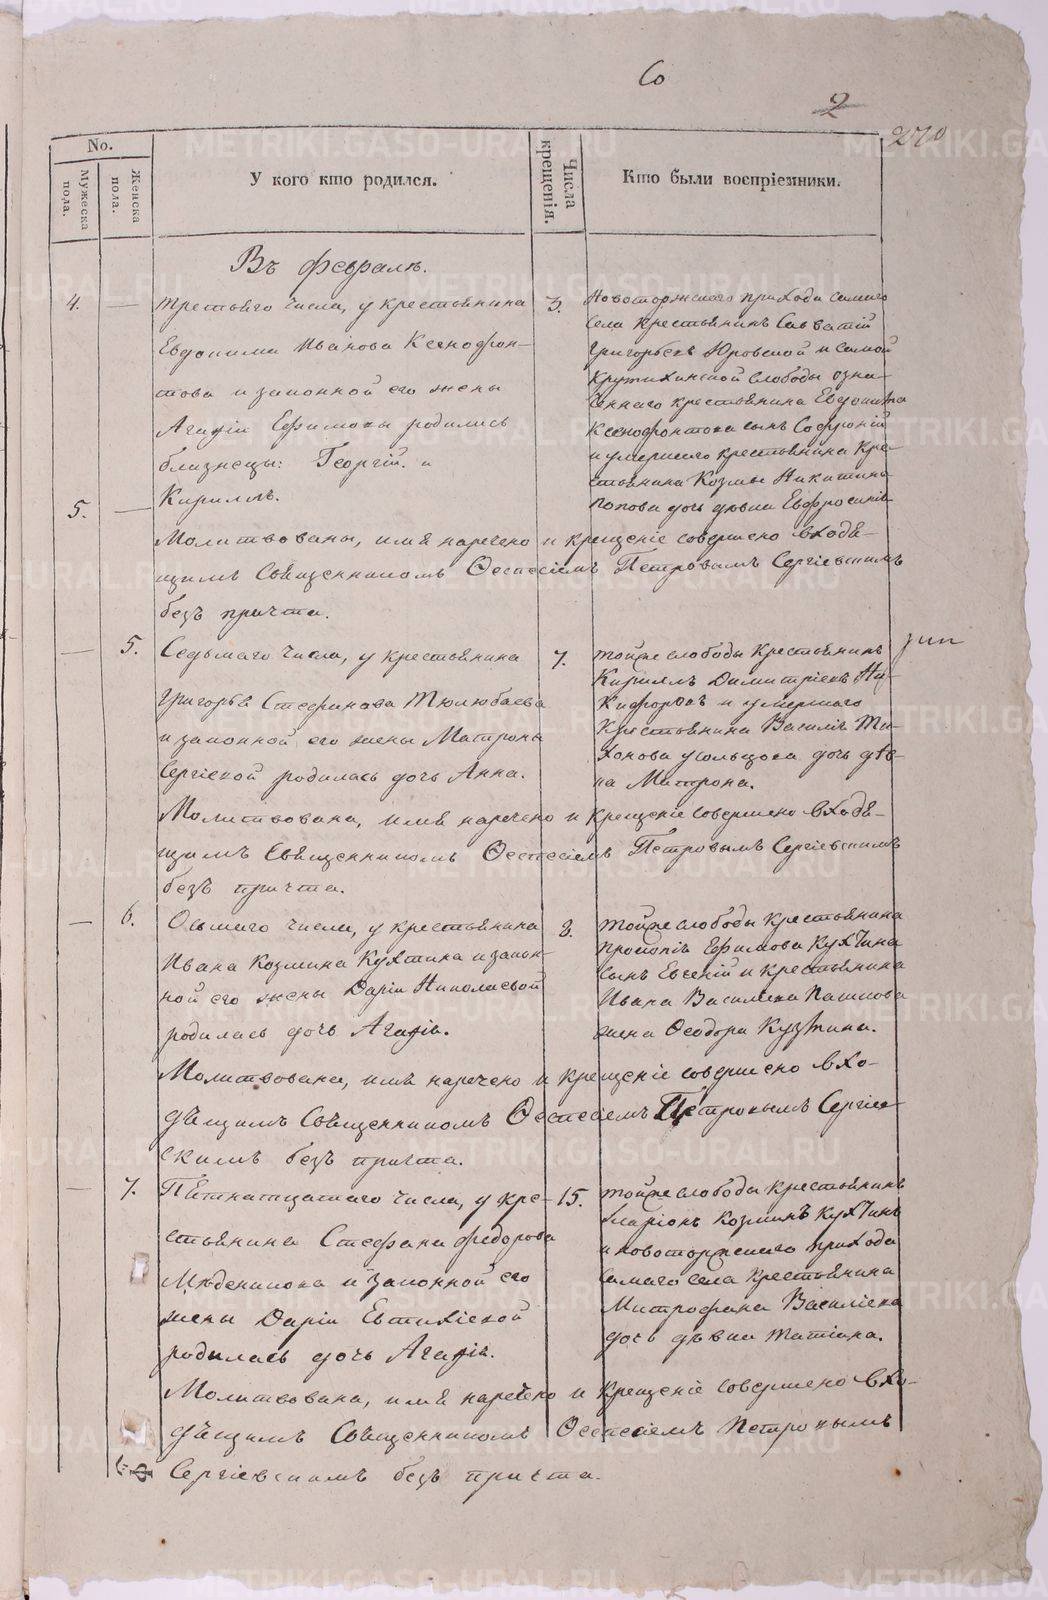 Со
2
270
No.
Мужеска пола.
Женска пола.
У кого кто родился.
Числа крещенія.
Кто были воспріемники.
Въ февралѣ.
4. — третьяго числа, у крестьянина
Евдокима Иванова Ксенофон-
това и законной его жены
Агафіи Ефимовы родились
близнецы: Георгій и
5. — Кириллъ.
3. Новоторжскаго прихода самаго
села крестьянинъ Савватій
Григорьевъ Юровской и самой
Крутихинской слободы озна-
ченнаго крестьянина Евдокима
Ксенофонтова сынъ Софроній
и умершаго крестьянина Кре-
стьянина Козмы Никитина
Попова дочь дѣвка Евфросинія
Молитвованы, имя наречено и крещеніе совершено входя-
щимъ Священникомъ Ѳеспесіемъ Петровымъ Сергіевскимъ
безъ причта.
— 5. Седьмаго числа, у крестьянина
Григорья Стефанова Тюлюбаева
и законной его жены Матроны
Сергіевой родилась дочь Анна.
7. тойже слободы крестьянинъ
Кириллъ Димитріевъ Ни-
кифоровъ и умершаго
Крестьянина Василія Ти-
хонова Усольцова дочь дѣв-
ка Матрона.
Молитвована, имя наречено и крещеніе совершено входя-
щимъ Священникомъ Ѳеспесіемъ Петровымъ Сергіевскимъ
безъ причта.
— 6. Осьмаго числа, у крестьянина
Ивана Козмина Кухтина и закон-
ной его жены Даріи Николаевой
родилась дочь Агафія.
8. тойже слободы крестьянина
Прокопія Ефимова Кухтина
сынъ Евгеній и крестьянина
Ивана Василіева Пашкова
жена Ѳеодора Кузмина.
Молитвована, имя наречено и крещеніе совершено вхо-
дящимъ Священникомъ Ѳеспесіемъ Петровымъ Сергіев-
скимъ безъ причта.
— 7. Пятнатцатаго числа, у кре-
стьянина Стефана Федорова
Мѣденикова и законной его
жены Даріи Евтихіевой
родилась дочь Агафія.
15. тойже слободы крестьянинъ
Иларіонъ Козминъ Кухтинъ
и новоторжскаго прихода
самаго села крестьянина
Митрофана Василіева
дочь дѣвка Татіана.
Молитвована, имя наречено и крещеніе совершено вхо-
дящимъ Священникомъ Ѳеспесіемъ Петровымъ
Сергіевскимъ безъ причта.
METRIKI.GASO-URAL.RU